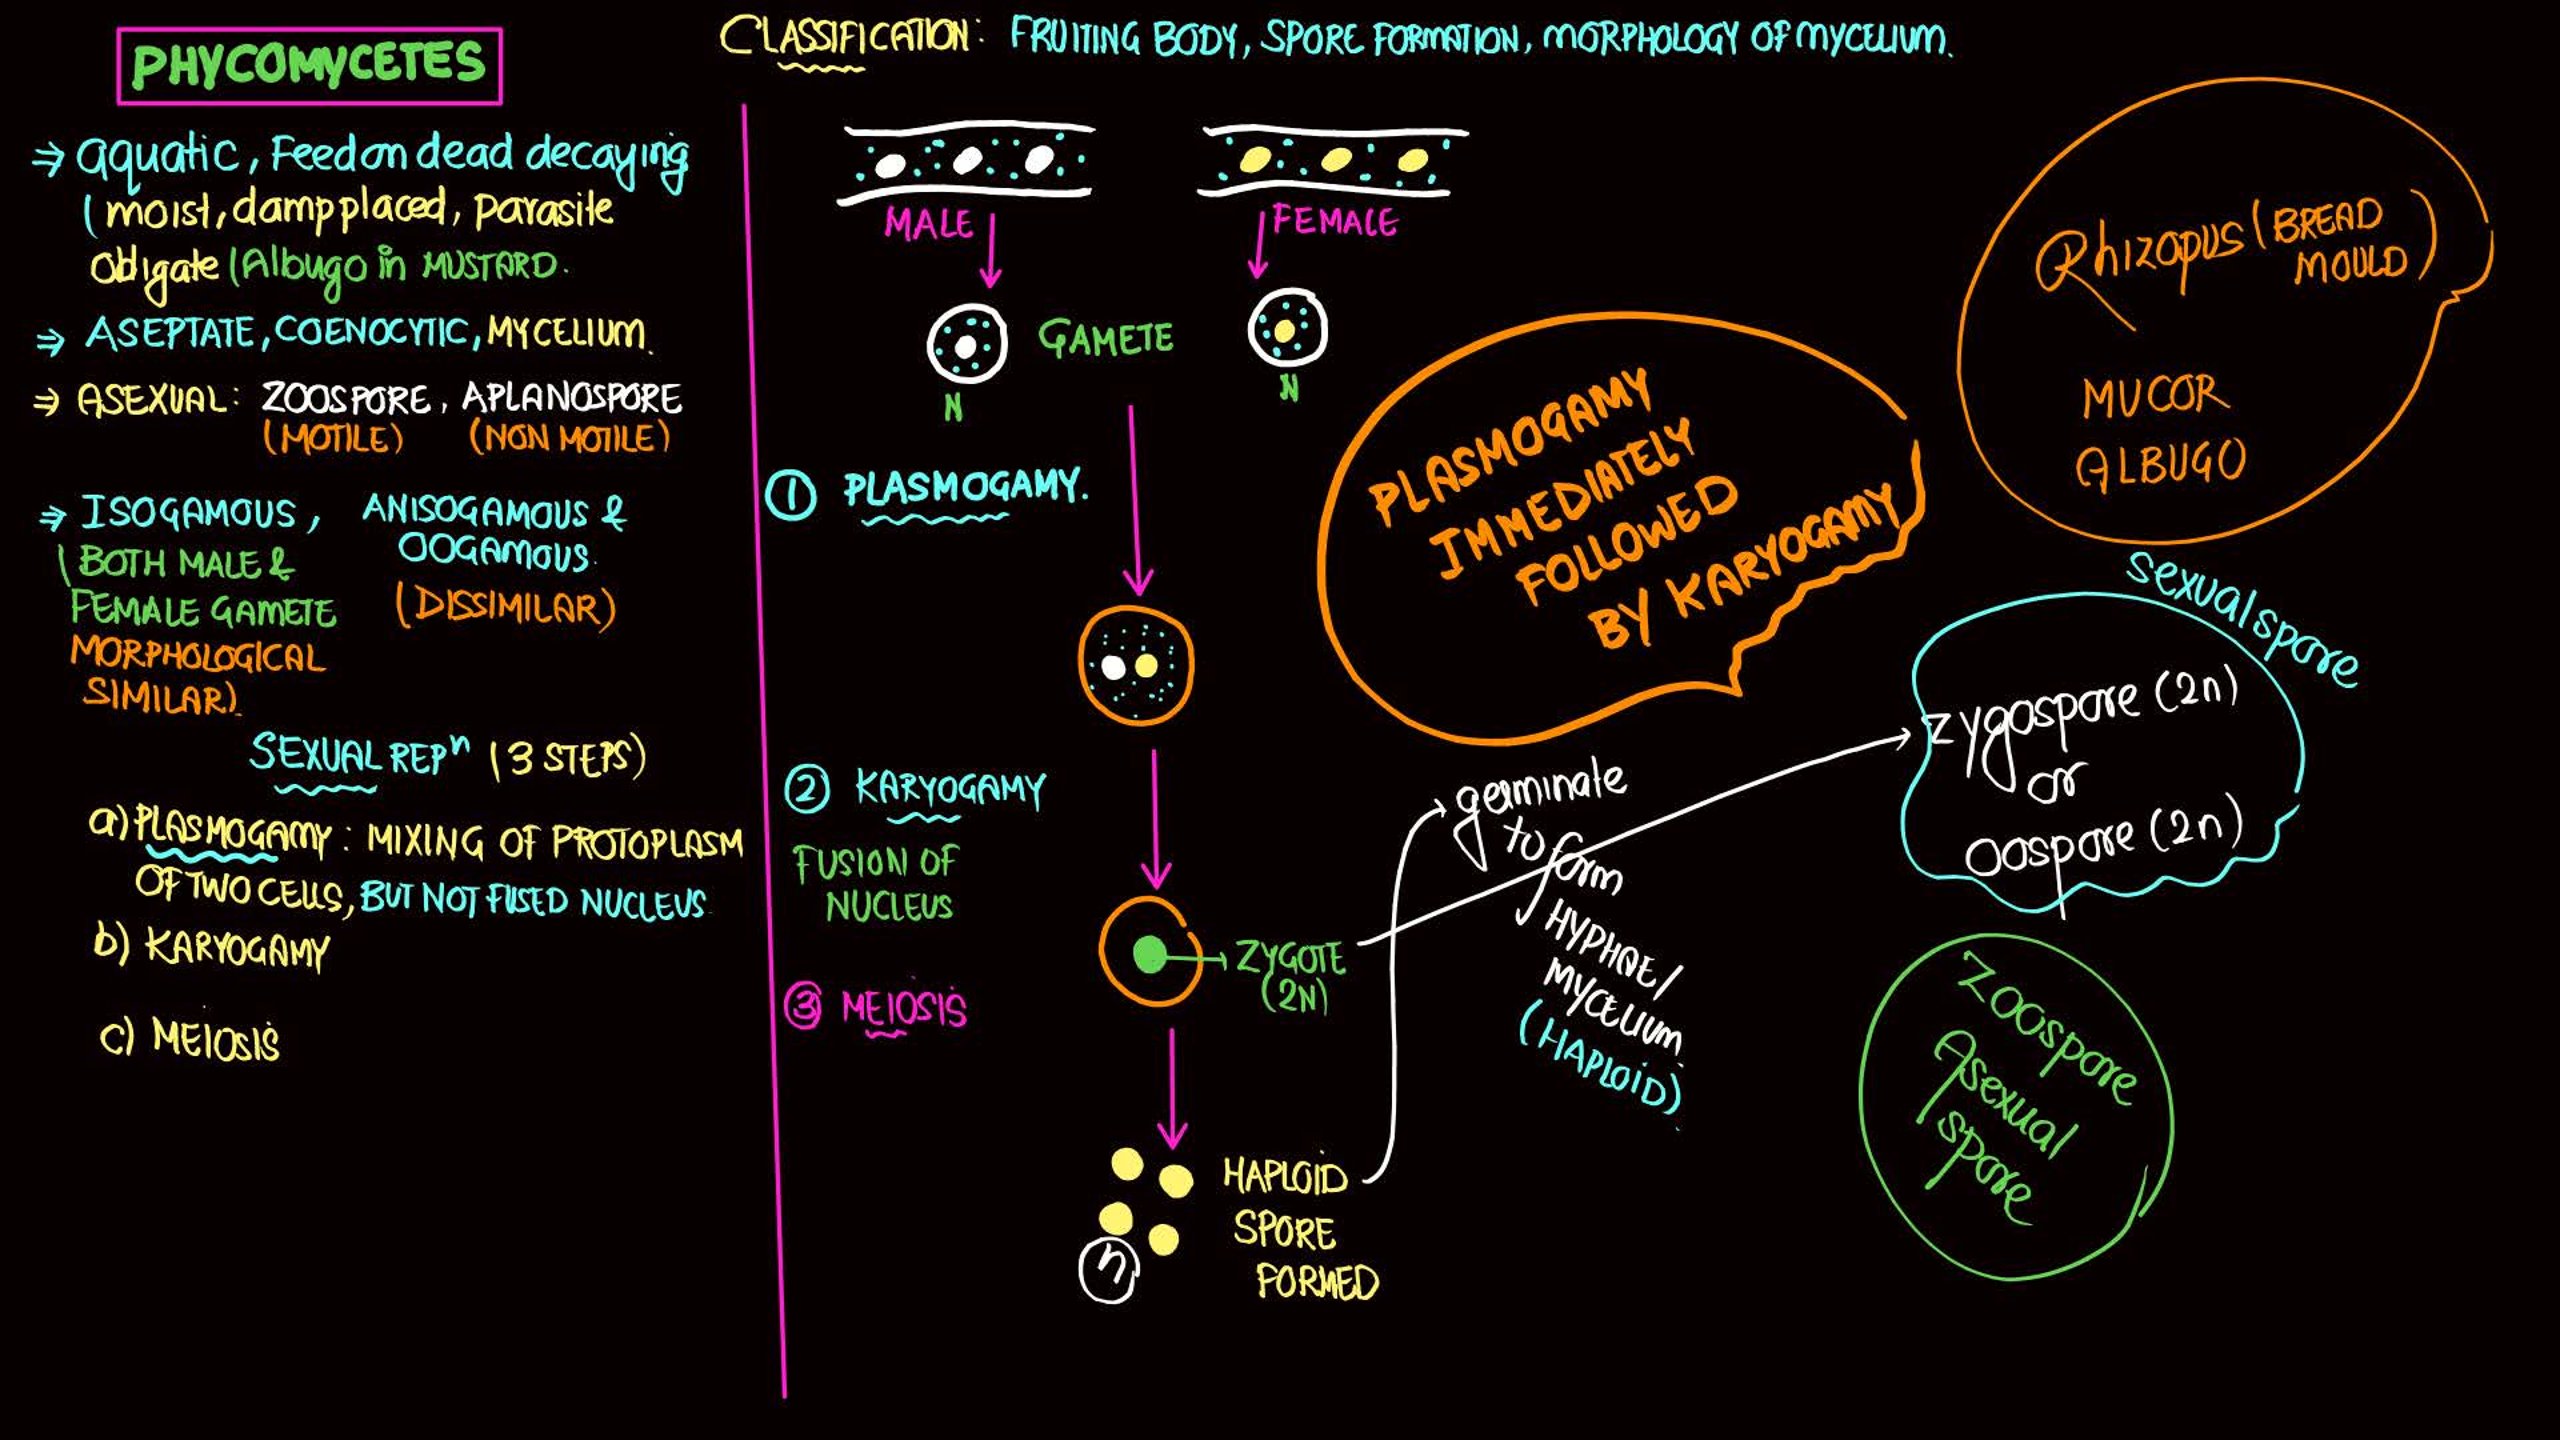 PHYCOMYCETES
CLASSIFICATION: FRUITING BODY, SPORE FORMATION, MORPHOLOGY OF MYCELIUM.
⇒ aquatic, Feed on dead decaying
(moist, damp placed, parasite
obligate (Albugo in MUSTARD.
⇒ ASEPTATE, COENOCYTIC, MYCELIUM.
⇒ ASEXUAL: ZOOSPORE, APLANOSPORE
(MOTILE) (NON MOTILE)
⇒ ISOGAMOUS, ANISOGAMOUS &
OOGAMOUS.
(BOTH MALE &
FEMALE GAMETE (DISSIMILAR)
MORPHOLOGICAL
SIMILAR).
SEXUAL REPⁿ (3 STEPS)
a) PLASMOGAMY: MIXING OF PROTOPLASM
OF TWO CELLS, BUT NOT FUSED NUCLEUS.
b) KARYOGAMY
c) MEIOSIS
MALE FEMALE
GAMETE
N N
① PLASMOGAMY.
② KARYOGAMY
FUSION OF
NUCLEUS
③ MEIOSIS
ZYGOTE
(2N)
HAPLOID
SPORE
FORMED
n
germinate
to form
HYPHAE/
MYCELIUM
(HAPLOID).
PLASMOGAMY
IMMEDIATELY
FOLLOWED
BY KARYOGAMY
Rhizopus (BREAD
MOULD)
MUCOR
ALBUGO
sexual spore
zygospore (2n)
or
Oospore (2n)
Zoospore
Asexual
spore